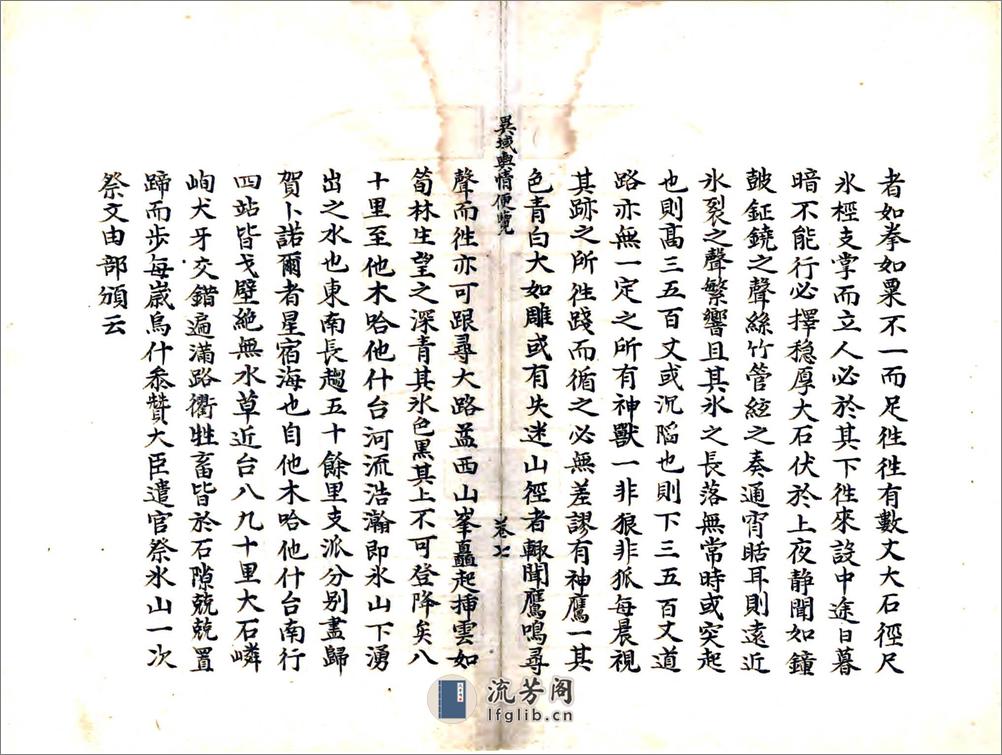 者如拳如栗不一而足徃徃有數丈大石徑尺
氷桱支掌而立人必於其下徃來設中途日暮
暗不能行必擇穏厚大石伏於上夜静聞如鐘
皷鉦鐃之聲絲竹管絃之奏通宵聒耳則遠近
氷裂之聲繁響且其氷之長落無常時或突起
也則高三五百丈或沉陷也則下三五百丈道
路亦無一定之所有神獸一非狼非狐每晨視
其跡之所徃踐而循之必無差謬有神鷹一其
色青白大如雕或有失迷山徑者輙聞鷹鳴尋
異域輿情便覽
卷七
聲而徃亦可跟尋大路益西山峯矗起揷雲如
筍林生望之深青其氷色黑其上不可登降矣八
十里至他木哈他什台河流浩瀚即氷山下湧
出之水也東南長趨五十餘里支派分别盡歸
賀卜諾爾者星宿海也自他木哈他什台南行
四站皆戈壁絶無水草近台八九十里大石嶙
峋犬牙交錯遍滿路衢牲畜皆於石隙兢兢置
蹄而步每嵗烏什叅贊大臣遣官祭氷山一次
祭文由部頒云
流芳阁
lfglib.cn